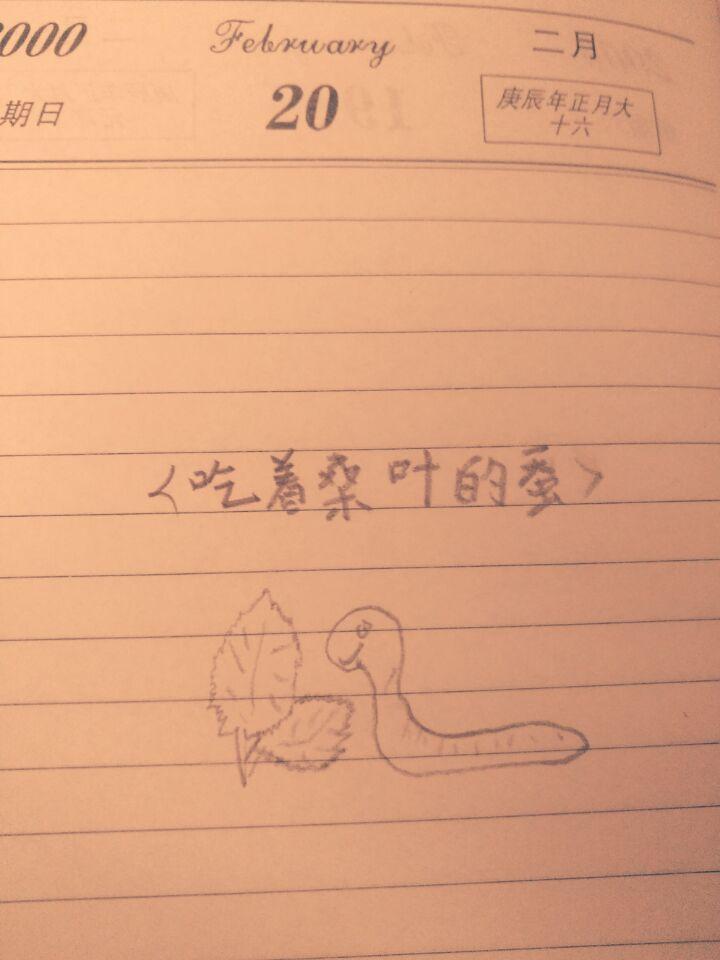 000 February 二月
期日 20 庚辰年正月大
十六
<吃着桑叶的蚕>